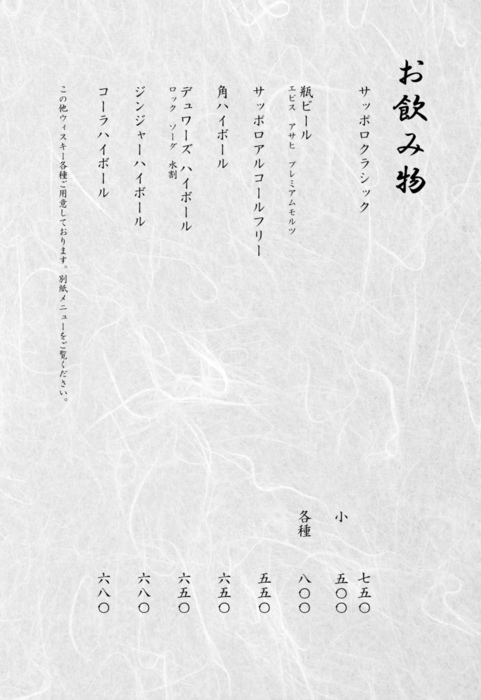 お飲み物
サッポロクラシック　七五〇
小　五〇〇
瓶ビール　各種　八〇〇
エビス　アサヒ　プレミアムモルツ
サッポロアルコールフリー　五五〇
角ハイボール　六五〇
デュワーズ ハイボール　六五〇
ロック　ソーダ　水割
ジンジャーハイボール　六八〇
コーラハイボール　六八〇
この他ウィスキー各種ご用意しております。別紙メニューをご覧ください。